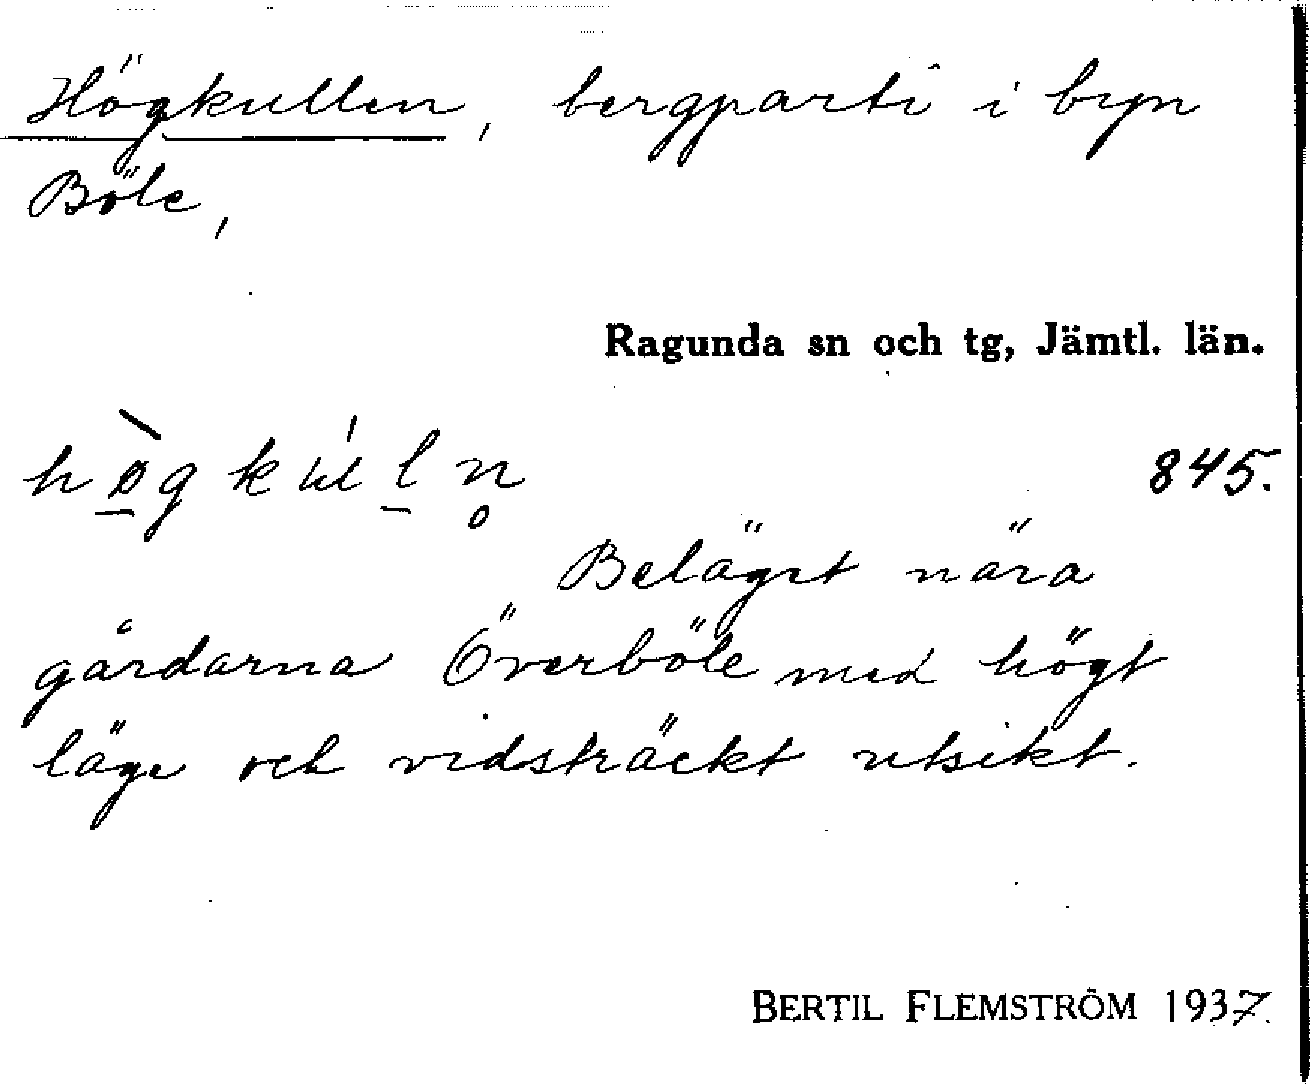 Högkullen, bergparti i byn
Böle,
Ragunda sn och tg, Jämtl. län.
hø̠̀gkúl̠n̥
845.
Beläget nära
gårdarna Överböle med högt
läge och vidsträckt utsikt.
BERTIL FLEMSTRÖM 1937.